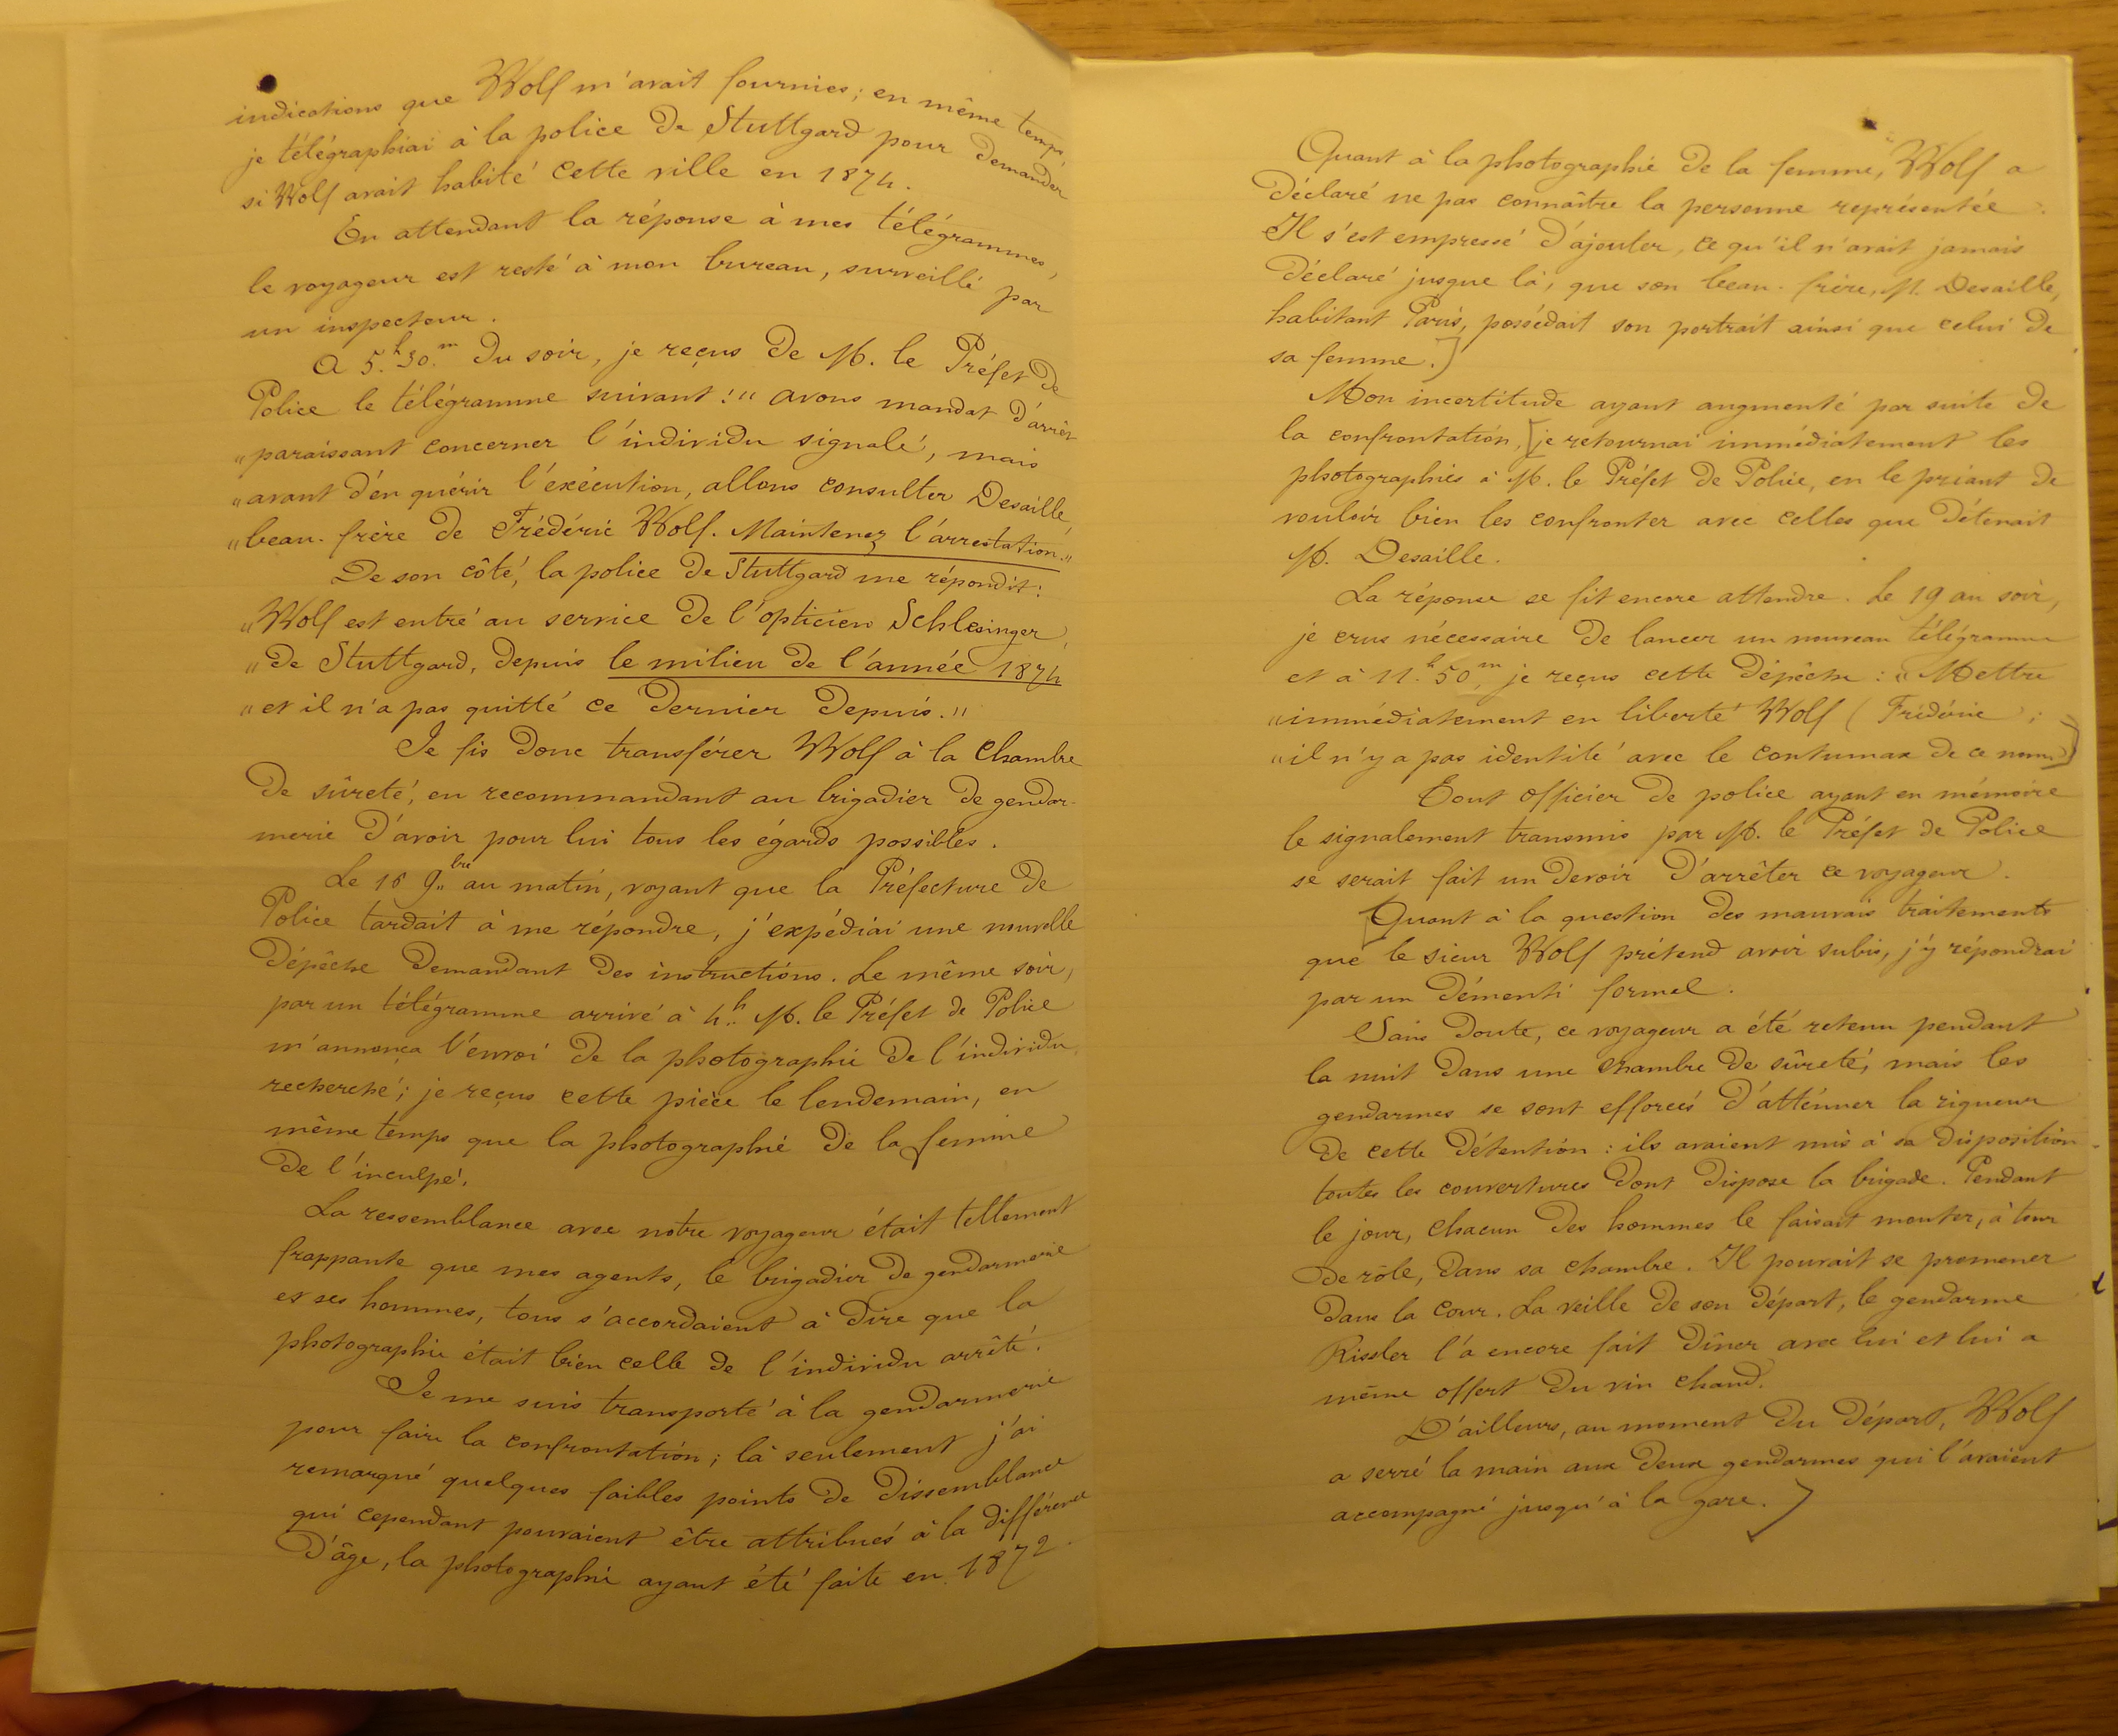 indications que Wolf m'avait fournies; en même temps,
je télégraphiai à la police de Stuttgard pour demander
si Wolf avait habité cette ville en 1874.
En attendant la réponse à mes télégrammes,
le voyageur est resté à mon bureau, surveillé par
un inspecteur.
A 5.h30.m du soir, je reçus de M. le Préfet de
Police le télégramme suivant: " avons mandat d'arrêt
" paraissant concerner l'individu signalé, mais
" avant d'en quérir l'exécution, allons consulter Desaille,
" beau-frère de Frédéric Wolf. Maintenez l'arrestation."
De son côté, la police de Stuttgard me répondit:
" Wolf est entré au service de l'opticien Schlesinger,
" de Stuttgard, depuis le milieu de l'année 1874
" et il n'a pas quitté ce dernier depuis."
Je fis donc transférer Wolf à la chambre
de sûreté, en recommandant au brigadier de gendar-
merie d'avoir pour lui tous les égards possibles.
Le 18 9.bre au matin, voyant que la Préfecture de
Police tardait à me répondre, j'expédiai une nouvelle
dépêche demandant des instructions. Le même soir,
par un télégramme arrivé à 4.h M. le Préfet de Police
m'annonça l'envoi de la photographie de l'individu
recherché; je reçus cette pièce le lendemain, en
même temps que la photographie de la femme
de l'inculpé.
La ressemblance avec notre voyageur était tellement
frappante que mes agents, le brigadier de gendarmerie
et ses hommes, tous s'accordaient à dire que la
photographie était bien celle de l'individu arrêté.
Je me suis transporté à la gendarmerie
pour faire la confrontation; là seulement j'ai
remarqué quelques faibles points de dissemblance
qui cependant pouvaient être attribués à la différence
d'âge, la photographie ayant été faite en 1872.
Quant à la photographie de la femme, Wolf a
déclaré ne pas connaître la personne représentée.
Il s'est empressé d'ajouter, ce qu'il n'avait jamais
déclaré jusque là, que son beau-frère, M. Desaille,
habitant Paris, possédait son portrait ainsi que celui de
sa femme.]
Mon incertitude ayant augmenté par suite de
la confrontation, [je retournai immédiatement les
photographies à M. le Préfet de Police, en le priant de
vouloir bien les confronter avec celles que détenait
M. Desaille.
La réponse se fit encore attendre. Le 19 au soir,
je crus nécessaire de lancer un nouveau télégramme
et à 11.h 50m, je reçus cette dépêche: " Mettre
" immédiatement en liberté Wolf (Frédéric;
" il n'y a pas identité avec le contumax de ce nom)]
Tout officier de police ayant en mémoire
le signalement transmis par M. le Préfet de Police
se serait fait un devoir d'arrêter ce voyageur.
[Quant à la question des mauvais traitements
que le sieur Wolf prétend avoir subis, j'y répondrai
par un démenti formel.
Sans doute, ce voyageur a été retenu pendant
la nuit dans une chambre de sûreté, mais les
gendarmes se sont efforcés d'atténuer la rigueur
de cette détention: ils avaient mis à sa disposition
toutes les couvertures dont dispose la brigade. Pendant
le jour, chacun des hommes le faisait monter, à tour
de rôle, dans sa chambre. Il pouvait se promener
dans la cour. La veille de son départ, le gendarme
Rissler l'a encore fait dîner avec lui et lui a
même offert du vin chaud.
D'ailleurs, au moment du départ, Wolf
a serré la main aux deux gendarmes qui l'avaient
accompagné jusqu'à la gare.]